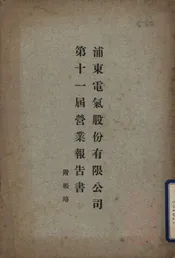 浦東電氣股份有限公司
第十一屆營業報告書